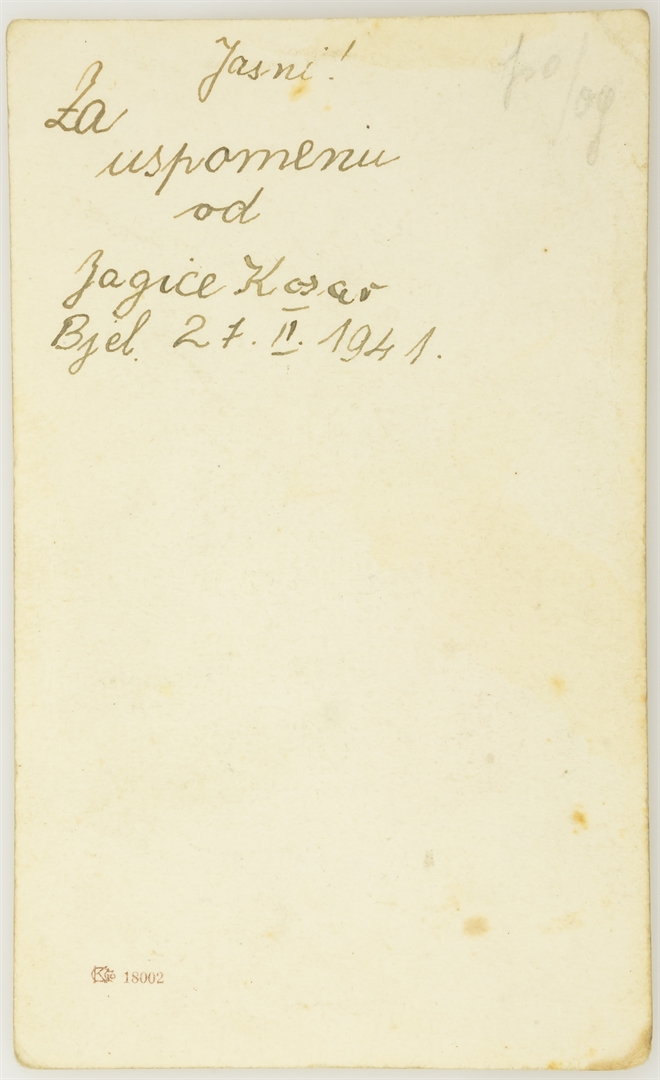 Jasni!
Za
uspomenu
od
Jagice Kosar
Bjel. 27. II. 1941.
18002